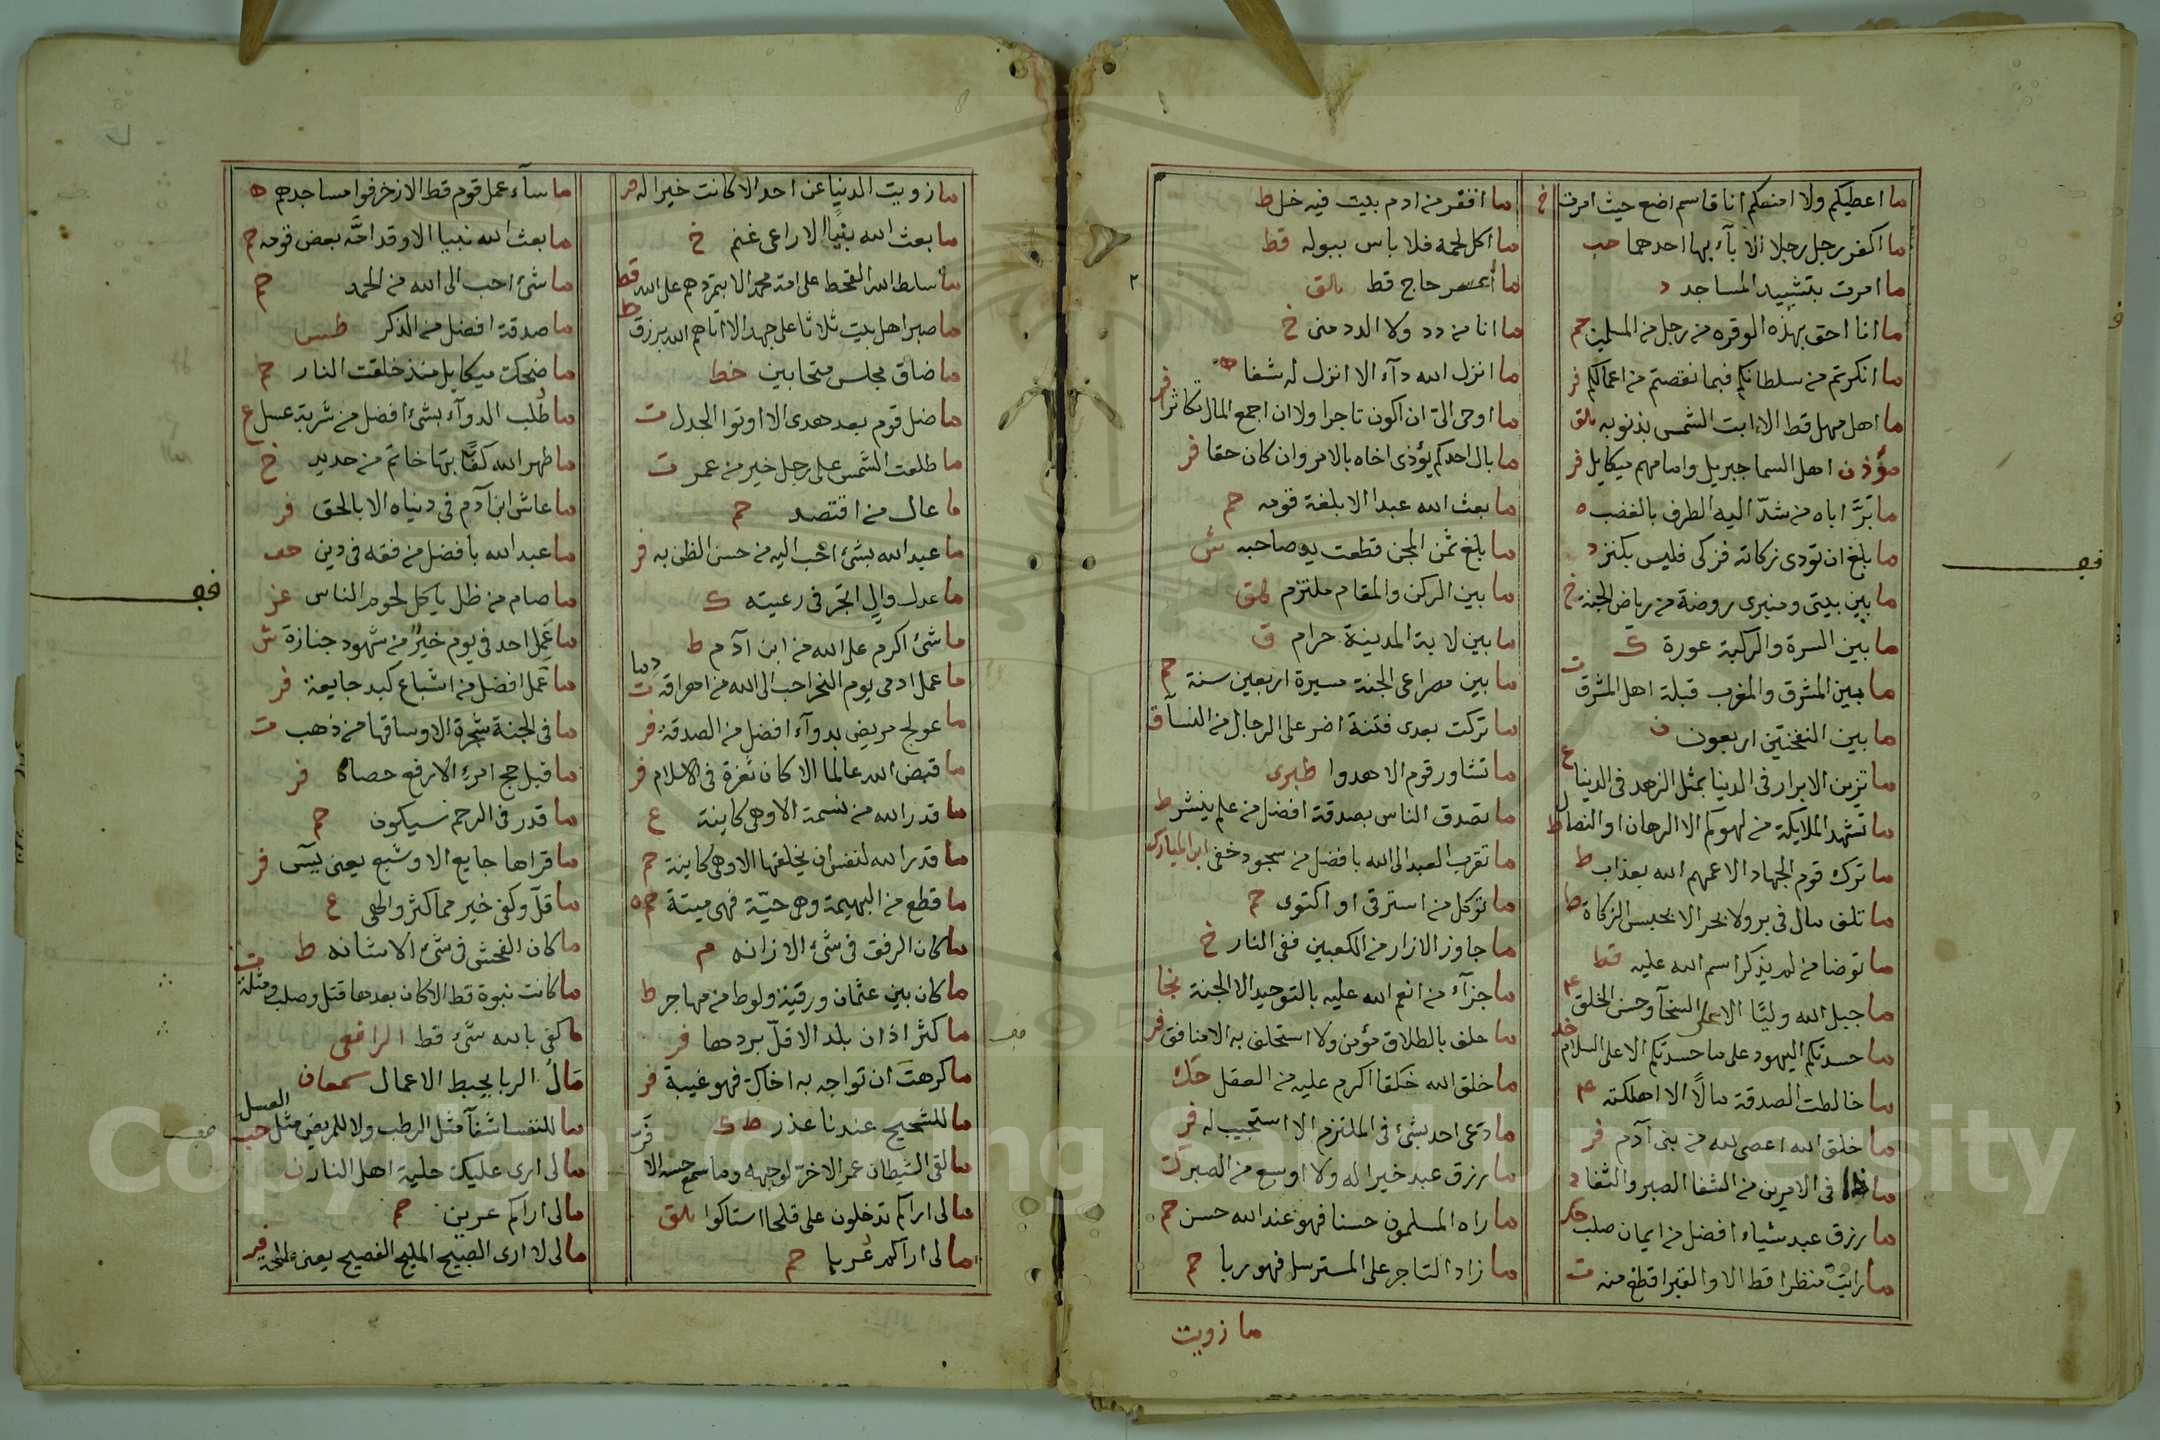 ما اعطيكم ولا امنعكم انا قاسم اضع حيث امرت خ
ما اكفر رجل رجلا الا بآء بها احدهما حب
ما امرت بتشييد المساجد د
ما انا احق بهذه الوقره من رجل من المسلمين حم
ما انكرتم من سلطانكم فبما نقصتم من اعمالكم فر
ما اهل مهل قط الا ابت الشمس بذنوبه
مؤذن اهل السما جبريل وامامهم ميكايل فر
ما برَّ اباه من شدّ اليه الطرف بالغضب ه
ما بلغ ان تودى زكاته فزكى فليس بكنز د
ما بين بيتى ومنبرى روضة من رياض الجنة خ
ما بين السرة والركبة عورة ك
ما بين المشرق والمغرب قبلة اهل المشرق ت
ما بين النفختين اربعون ف
ما تزين الابرار فى الدنيا بمثل الزهد فى الدنيا ع
ما تشهد الملايكة من لهوكم الا الرهان او النصال ط
ما ترك قوم الجهاد الا عمهم الله بعذاب ط
ما تلف مال فى بر ولا بحر الا بحبس الزكاة ط
ما توضا من لم يذكر اسم الله عليه قط
ما جبل الله وليّا الا على السخآ وحسن الخلق
ما حسدتكم اليهود على ما حسدتكم الا على السلام خد
ما خالطت الصدقة مالًا الا اهلكته
ما خلق الله اعصى لله من بنى آدم فر
ما ذا فى الامرين من الشفا الصبر والثفا د
ما رزق عبد شياء افضل من ايمان صلب حك
ما رايت منظرا قط الا والقبر افظع منه ت
ما افقر من ادم بيت فيه خل ط
ما اكل لحمه فلا باس ببوله قط
ما أمعر حاج قط
ما انا من دد ولا الدد منى خ
ما انزل الله دآء الا انزل له شفا ه
ما اوحى الىّ ان اكون تاجرا ولا ان اجمع المال تكاثرا فر
ما بال احدكم يؤذى اخاه بالامر وان كان حقا فر
ما بعث الله عبدا الا بلغة قومه حم
ما بلغ ثمن المجن قطعت يد صاحبه
ما بين الركن والمقام ملتزم
ما بين لابة المدينة حرام ق
ما بين مصراعى الجنة مسيرة اربعين سنة حم
ما تركت بعدى فتنة اضر على الرجال من النسآ ق
ما تشاور قوم الا هدوا طبرى
ما تصدق الناس بصدقة افضل من علم ينشر ط
ما تقرب العبد الى الله بافضل من سجود خفى ابن المبارك
ما توكل من استرقى او اكتوى حم
ما جاوز الازار من الكعبين ففى النار خ
ما جزآء من انعم الله عليه بالتوحيد الا الجنة نجا
ما حلف بالطلاق مؤمن ولا استحلف به الا منافق فر
ما خلق الله خلقا اكرم عليه من العقل حك
ما دعى احد بشئ فى الملتزم الا استجيب له فر
ما رزق عبد خيرا له ولا اوسع من الصبر ك
ما راه المسلمون حسنا فهو عند الله حسن حم
ما زاد التاجر على المسترسل فهو ربا حم
ما زويت
ما زويت الدنيا عن احد الا كانت خيرا له فر
ما بعث الله نبيًا الا راعى غنم خ
ما سلط الله القحط على امة محمد الا بتمردهم على الله قط
ما صبر اهل بيت ثلاثا على جهد الا اتاهم الله برزق ط
ما ضاق مجلس متحابين خط
ما ضل قوم بعد هدى الا اوتوا الجدل ت
ما طلعت الشمس على رجل خير من عمر ت
ما عال من اقتصد حم
ما عبد الله بشئ احب اليه من حسن الظن به فر
ما عدل وال اتجر فى رعيته ك
ما شئ اكرم على الله من ابن آدم ط
ما عمل ادمى يوم النحر احب الى الله من اهراقة دما ت
ما عولج مريض بدوآء افضل من الصدقة فر
ما قبض الله عالما الا كان ثغرة فى الاسلام فر
ما قدر الله من نسمة الا وهى كاينة ع
ما قدر الله لنفس ان يخلقها الا وهى كاينة حم
ما قطع من البهيمة وهى حيّة فهى ميتة حم ه
ما كان الرفق فى شئ الا زانه م
ما كان بين عثمان ورقية ولوط من مهاجر ط
ما كثر اذان بلد الا قلّ بردها فر
ما كرهت ان تواجه به اخاك فهو غيبة فر
ما للشحيح عندنا عذر ط ك
ما لقى الشيطان عمر الا خرّ لوجهه وما سمع حسه الا فرّ
ما لى اراكم تدخلون على قلحا استاكوا
ما لى اراكم عُربا حم
ما سآء عمل قوم قط الا زخرفوا مساجدهم ه
ما بعث الله نبيا الا وقد امّه بعض قومه حم
ما شئ احب الى الله من الحمد حم
ما صدقة افضل من الذكر طس
ما ضحك ميكايل منذ خلقت النار حم
ما طُلب الدوآء بشئ افضل من شربة عسل ع
ما طهر الله كفًّا بها خاتم من حديد خ
ما عاش ابن آدم فى دنياه الا بالحق فر
ما عبد الله بافضل من فقه فى دين
ما صام من ظل ياكل لحوم الناس
ما عَمِل احد فى يوم خيرً من شهود جنازة ش
ما عَمل افضل من اشباع كبد جايعة فر
ما فى الجنة شجرة الا وساقها من ذهب ت
ما قبل حج امرئ الا رفع حصاه فر
ما قدر فى الرحم سيكون حم
ما قراها جايع الا وشبع يعنى يس فر
ما قلّ وكفى خير مما كثر والهى ع
ما كان الفحش فى شئ الا شانه ط
ما كانت نبوة قط الا كان بعدها قتل وصلب ومثلة
ما كفى بالله شئ قط الرافعى
مَالُ الربا يحبط الاعمال سمعان
ما للنفسا شفآ مثل الرطب ولا للمريض مثل العسل
ما لى ارى عليك حلية اهل النار ن
ما لى اراكم عزين حم
ما لى لا ارى الصبيح المليح الفصيح يعنى فر
Copyright © King Saud University